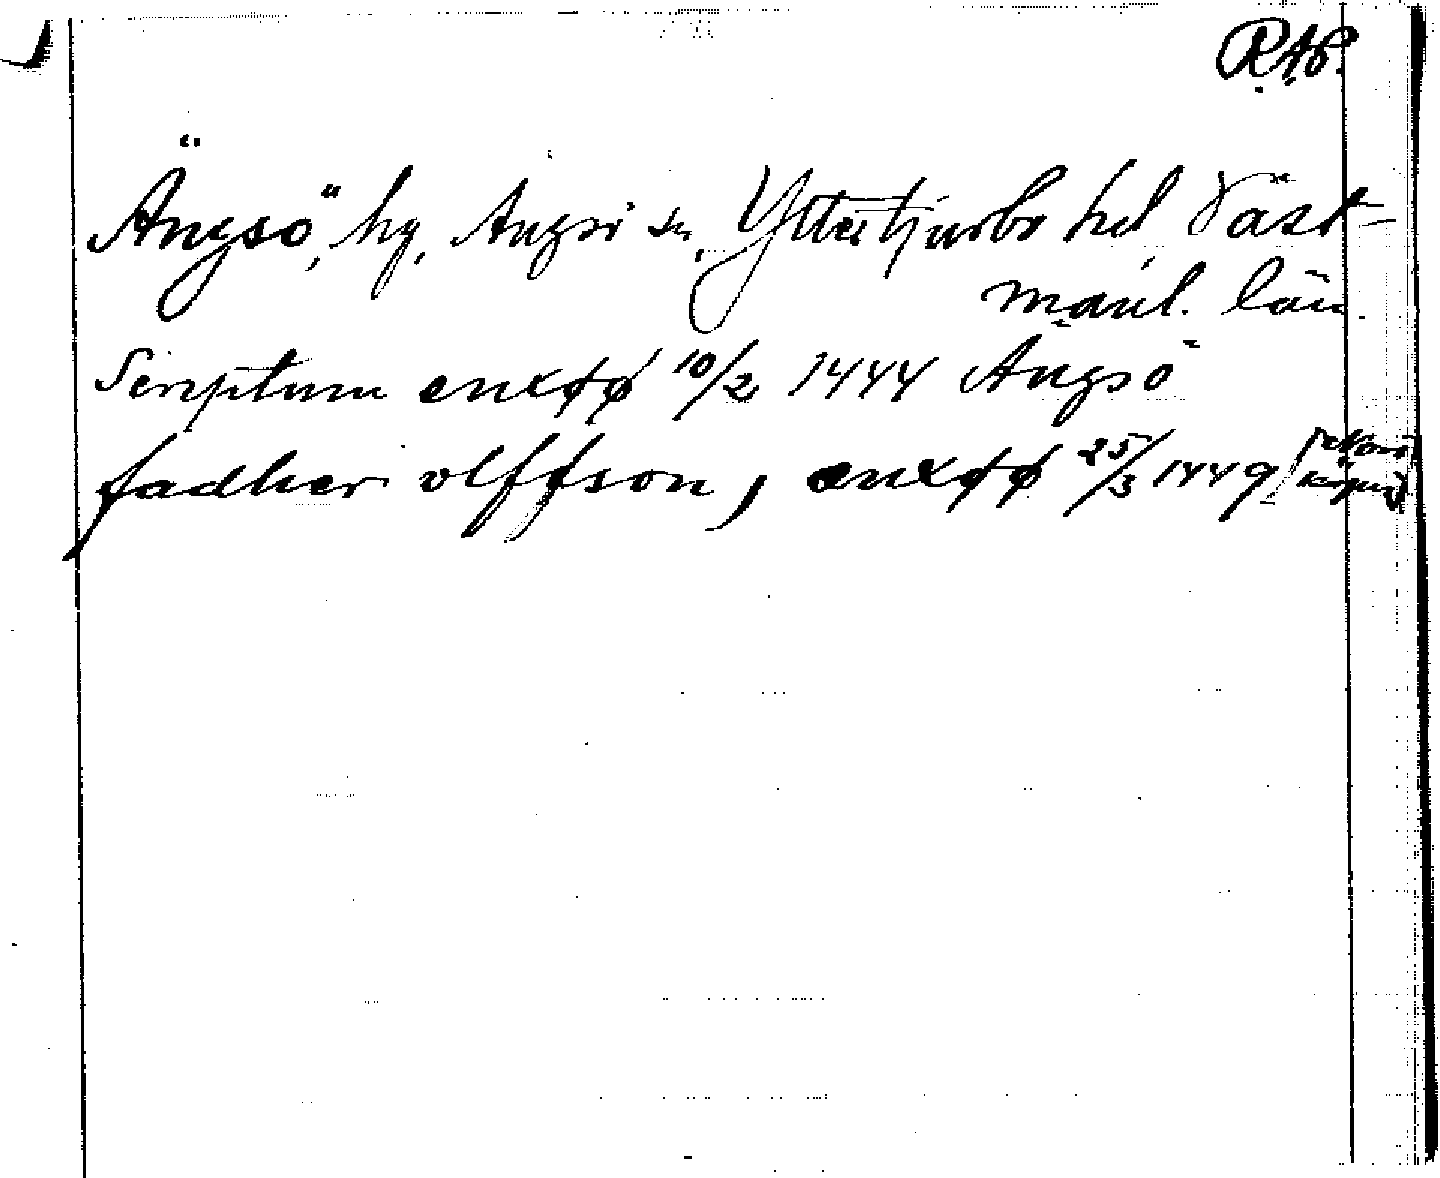 RAP.
Ängsö, hg, Ängsö sn, Yttertjurbo hd, Väst-
manl. län.
Scriptum enxøø 10/2 1444 Ängsö
fadher olffson, enxøø 25/3 1449